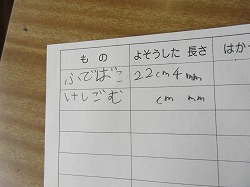 もの よそうした長さ はか
ふでばこ 22cm4mm
けしごむ cm mm